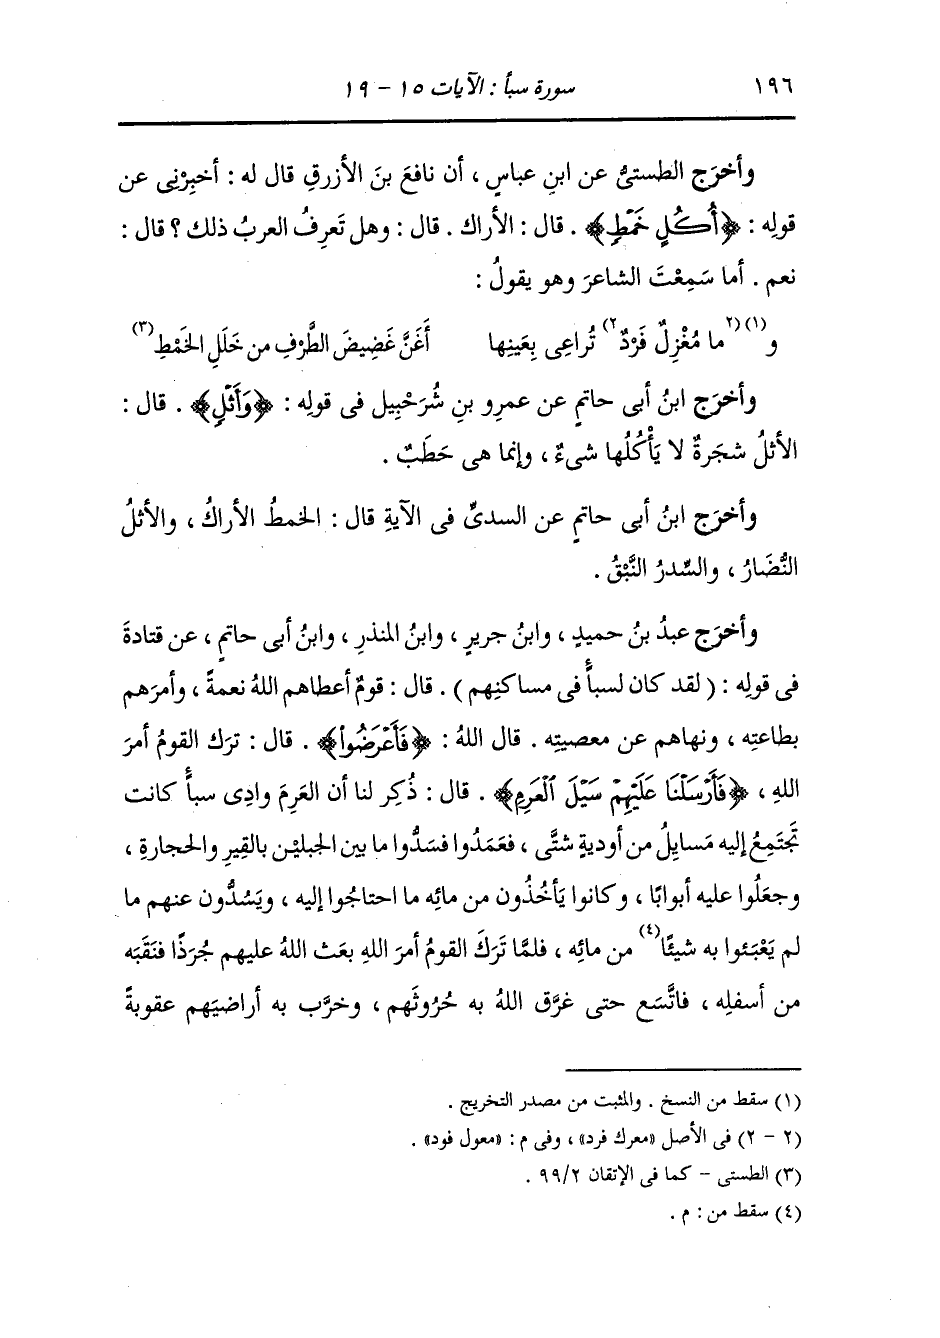 ١٩٦ سورة سبأ : الآيات ١٥ - ١٩
وأخرَج الطستىُّ عن ابنِ عباسٍ ، أن نافعَ بنَ الأزرقِ قال له : أخبِرْنِى عن
قولِه : ﴿أُكُلٍ خَمْطٍ﴾ . قال : الأراك . قال : وهل تَعرِفُ العربُ ذلك ؟ قال :
نعم . أما سَمِعْتَ الشاعرَ وهو يقولُ :
و(١) (٢ما مُغْزِلٌ فَرْدٌ٢) تُراعِى بِعَينِها أَغَنَّ غَضِيضَ الطَّرْفِ من خَلَلِ الخَمْطِ(٣)
وأخرَج ابنُ أبى حاتمٍ عن عمرِو بنِ شُرَحْبِيل فى قولِه : ﴿وَأَثْلٍ﴾ . قال :
الأثلُ شجَرةٌ لا يَأْكُلُها شىءٌ ، وإنما هى حَطَبٌ .
وأخرَج ابنُ أبى حاتمٍ عن السدىِّ فى الآيةِ قال : الخمطُ الأراكُ ، والأثلُ
النُّضَارُ ، والسِّدرُ النَّبْقُ .
وأخرَج عبدُ بنُ حميدٍ ، وابنُ جريرٍ ، وابنُ المنذرِ ، وابنُ أبى حاتمٍ ، عن قتادةَ
فى قولِه : ( لقد كان لسبأٍ فى مساكنِهم ) . قال : قومٌ أعطاهم اللهُ نعمةً ، وأمرَهم
بطاعتِه ، ونهاهم عن معصيتِه . قال اللهُ : ﴿فَأَعْرَضُوا۟﴾ . قال : ترَك القومُ أمرَ
اللهِ ، ﴿فَأَرْسَلْنَا عَلَيْهِمْ سَيْلَ ٱلْعَرِمِ﴾ . قال : ذُكِر لنا أن العَرِمَ وادِى سبأٍ كانت
تَجتَمِعُ إليه مَسايِلُ من أوديةٍ شتَّى ، فعَمَدُوا فسَدُّوا ما بين الجبليْن بالقِيرِ والحجارةِ ،
وجعَلُوا عليه أبوابًا ، وكانوا يَأخُذُون من مائِه ما احتاجُوا إليه ، ويَسُدُّون عنهم ما
لم يَعْبَئوا به شيئًا(٤) من مائِه ، فلمَّا تَرَكَ القومُ أمرَ اللهِ بعَث اللهُ عليهم جُرَذًا فنَقَبَه
من أسفلِه ، فاتَّسَع حتى غرَّق اللهُ به حُرُوثَهم ، وخرَّب به أراضيَهم عقوبةً
(١) سقط من النسخ . والمثبت من مصدر التخريج .
(٢ - ٢) فى الأصل «معرك فرد» ، وفى م : «معول فود» .
(٣) الطستى - كما فى الإتقان ٩٩/٢ .
(٤) سقط من : م .